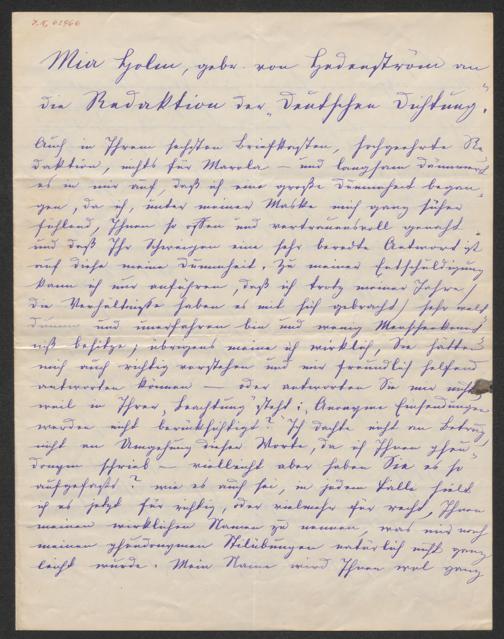 I.N. 61966
Mia Holm, gebr. von Hedenström an
die Redaktion der „Deutschen Dichtung“.
Auch in Ihrem sechsten Briefkasten, hochgeehrte Re
daktion, nichts für Marola — und langsam dämmert
es in mir auf, daß ich eine große Dummheit began-
gen, da ich, unter meiner Maske mich ganz sicher
fühlend, Ihnen so offen und vertrauensvoll genaht
und daß Ihr Schweigen eine sehr beredte Antwort ist
auf diese meine Dummheit. Zu meiner Entschuldigung
kann ich nur anführen, daß ich trotz meiner Jahre /
die Verhältnisse haben es mit sich gebracht / sehr welt
und unerfahren bin und wenig Menschenkennt
niß besitze; übrigens meine ich wirklich, Sie hätten
mich auch richtig verstehen und mir freundlich helfend
antworten können — oder antworten Sie mir nicht
weil in Ihrer „Beachtung“ steht: „Anonyme Einsendungen
werden nicht berücksichtigt“? Ich dachte nicht an Betrug,
nicht an Umgehung dieser Worte, da ich Ihnen pseu-
donym schrieb — vielleicht aber haben Sie es so
aufgefasst? Wie es auch sei, in jedem Falle halt
ich es jetzt für richtig, oder vielmehr für recht, Ihnen
meinen wirklichen Namen zu nennen, was mir nach
meinen pseudonymen Stilübungen natürlich nicht ganz
leicht wurde. Mein Name wird Ihnen wol ganz